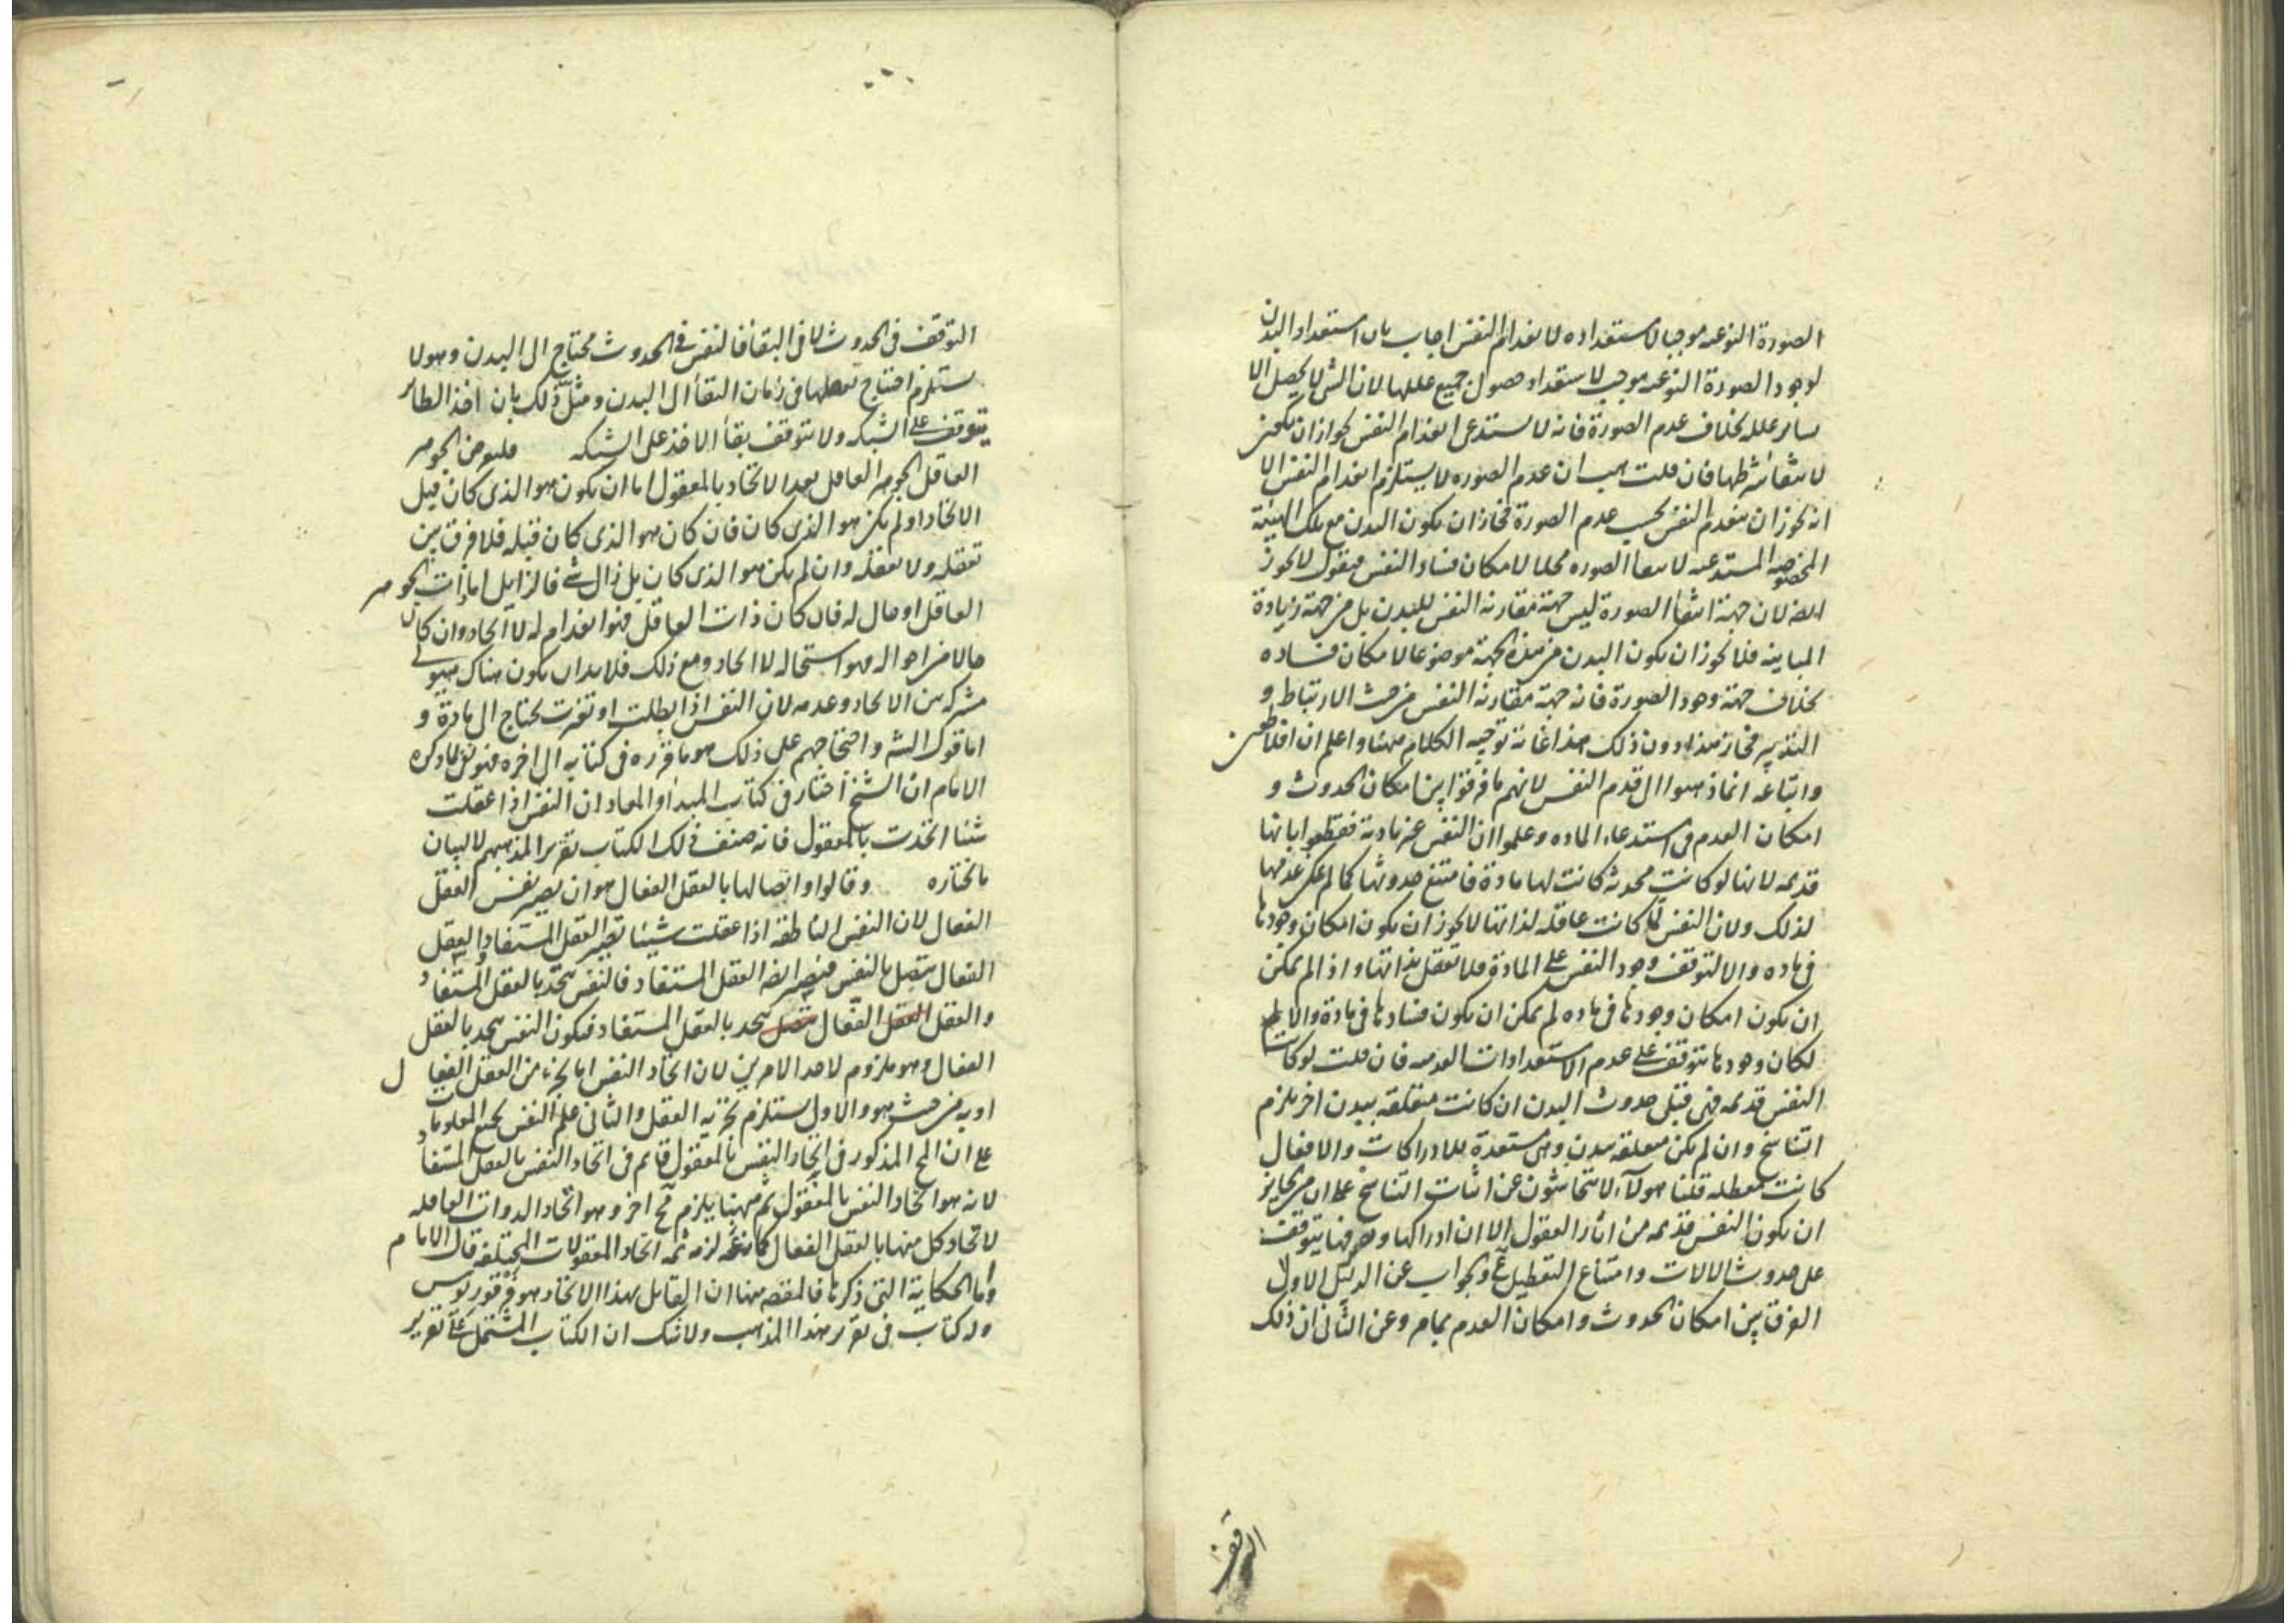 الصورة النوعيه موجبا لاستعداده لانعدام النفس اجاب بان استعداد البدن
لوجود الصورة النوعيه موجب لاستعداد حصول جميع عللها لان الشى لا يحصل الا
بساير علله بخلاف عدم الصورة فانه لا يستدعى انعدام النفس لجواز ان يكون
لانتفاء شرطها فان قلت هب ان عدم الصوره لا يستلزم انعدام النفس الا
انه يجوز ان ينعدم النفس بحسب عدم الصورة فجاز ان يكون البدن مع تلك الهيئة
المخصوصه المستدعيه لانتفاء الصوره محلا لامكان فساد النفس فيقول لا يجوز
ايضا لان جهة انتفاء الصورة ليس جهة مقارنة النفس للبدن بل من جهة زيادة
المباينه فلا يجوز ان يكون البدن من هذه الجهة موضوعا لامكان فساده
بخلاف جهة وجود الصورة فانه جهة مقارنة النفس من حيث الارتباط و
التدبير فجاز هذا دون ذلك هذا غاية توجيه الكلام ههنا واعلم ان افلاطون
واتباعه انما ذهبوا الى قدم النفس لانهم ما فرقوا بين امكان الحدوث و
امكان العدم فى استدعاء الماده وعلموا ان النفس غير مادية فقطعوا بانها
قديمه لانها لو كانت محدثه كانت لها مادة فامتنع حدوثها كما لم يمكن عدمها
لذلك ولان النفس لما كانت عاقله لذاتها لا يجوز ان يكون امكان وجودها
فى ماده والا لتوقف وجود النفس على المادة فلا تعقل بذاتها واذا لم يمكن
ان يكون امكان وجودها فى ماده لم يمكن ان يكون فسادها فى مادة والا
لكان وجودها يتوقف على عدم الاستعدادات العدميه فان قلت لو كانت
النفس قديمه فهى قبل حدوث البدن ان كانت متعلقه ببدن اخر يلزم
التناسخ وان لم يكن متعلقه ببدن وهى مستعدة للادراكات والافعال
كانت معطله قلنا هولاء لا يتحاشون عن اثبات التناسخ على ان من الجايز
ان يكون النفس قديمه من اثار العقول الا ان ادراكها وتصرفها يتوقف
على حدوث الالات وامتناع التعطيل مم والجواب عن الدليل الاول
الفرق بين امكان الحدوث وامكان العدم بما مر وعن الثانى ان ذلك
التوقف
التوقف فى الحدوث لا فى البقاء فالنفس فى الحدوث محتاج الى البدن وهو لا
يستلزم احتياج تعقلها فى زمان البقاء الى البدن ومثل ذلك بان اخذ الطائر
يتوقف على الشبكه ولا يتوقف بقاء الاخذ على الشبكه فليفرض الجوهر
العاقل الجوهر العاقل بعد الاتحاد بالمعقول اما ان يكون هو الذى كان قبل
الاتحاد او لم يكن هو الذى كان فان كان هو الذى كان قبله فلا فرق بين
تعقله ولا تعقله وان لم يكن هو الذى كان بل زال شئ فالزايل اما ذات الجوهر
العاقل او حال له فان كان ذات العاقل فهو انعدام له لا اتحاد وان كان
حالا من احواله فهو استحاله لا اتحاد ومع ذلك فلا بد ان يكون هناك هيولى
مشتركه بين الاتحاد وعدمه لان النفس اذا بطلت او تغيرت تحتاج الى مادة و
اما قوله الشيخ واحتجاجهم على ذلك هو ما قرره فى كتابه الى اخره فهو لما ذكره
الامام ان الشيخ اختار فى كتاب المبدأ والمعاد ان النفس اذا عقلت
شيئا اتحدت بالمعقول فانه صنف ذلك الكتاب تقريرا لمذهبهم لا لبيان
ما يختاره وقالوا واتصالها بالعقل الفعال هو ان يصير نفس العقل
الفعال لان النفس الناطقه اذا عقلت شيئا تصير العقل المستفاد والعقل
الفعال يتصل بالنفس فيصير ايضا العقل المستفاد فالنفس يتحد بالعقل المستفاد
والعقل العقل الفعال متصل يتحد بالعقل المستفاد فيكون النفس يتحد بالعقل
الفعال وهو ملزوم لاحد الامرين لان اتحاد النفس اما بجزء من العقل الفعال
او به من حيث هو هو والاول يستلزم تجزيه العقل والثانى علم النفس بجميع المعلومات
على ان المح المذكور فى اتحاد النفس بالمعقول قائم فى اتحاد النفس بالعقل المستفاد
لانه هو اتحاد النفس بالمعقول ثم ههنا يلزم مح اخر وهو اتحاد الذوات العاقله
لاتحاد كل منها بالعقل الفعال كما انه لزم ثمه اتحاد المعقولات المختلفه قال الامام
واما الحكاية التى ذكرها فالمقصد منها ان القايل بهذا الاتحاد هو فرفوريوس
وله كتاب فى تقرير هذا المذهب ولا شك ان الكتاب المشتمل على تقرير